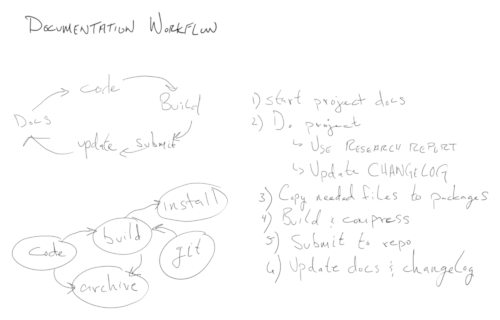 DOCUMENTATION WORKFLOW
code
Build
Docs
update
submit
install
build
code
git
archive
1) start project docs
2) Do project
↳ USE RESEARCH REPORT
↳ Update CHANGELOG
3) Copy needed files to packages
4) Build & compress
5) Submit to repo
6) Update docs & changelog